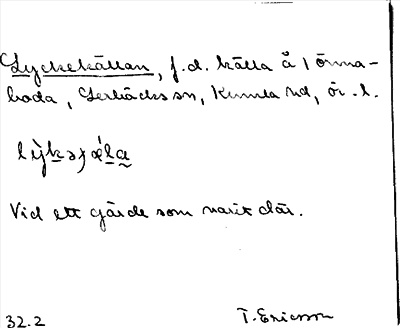 Lyckekällan, f.d. källa å Lönna-
boda, Lerbäcks sn, Kumla hd, ör. l.
Vid ett gärde som varit där.
32.2 T. Ericsson